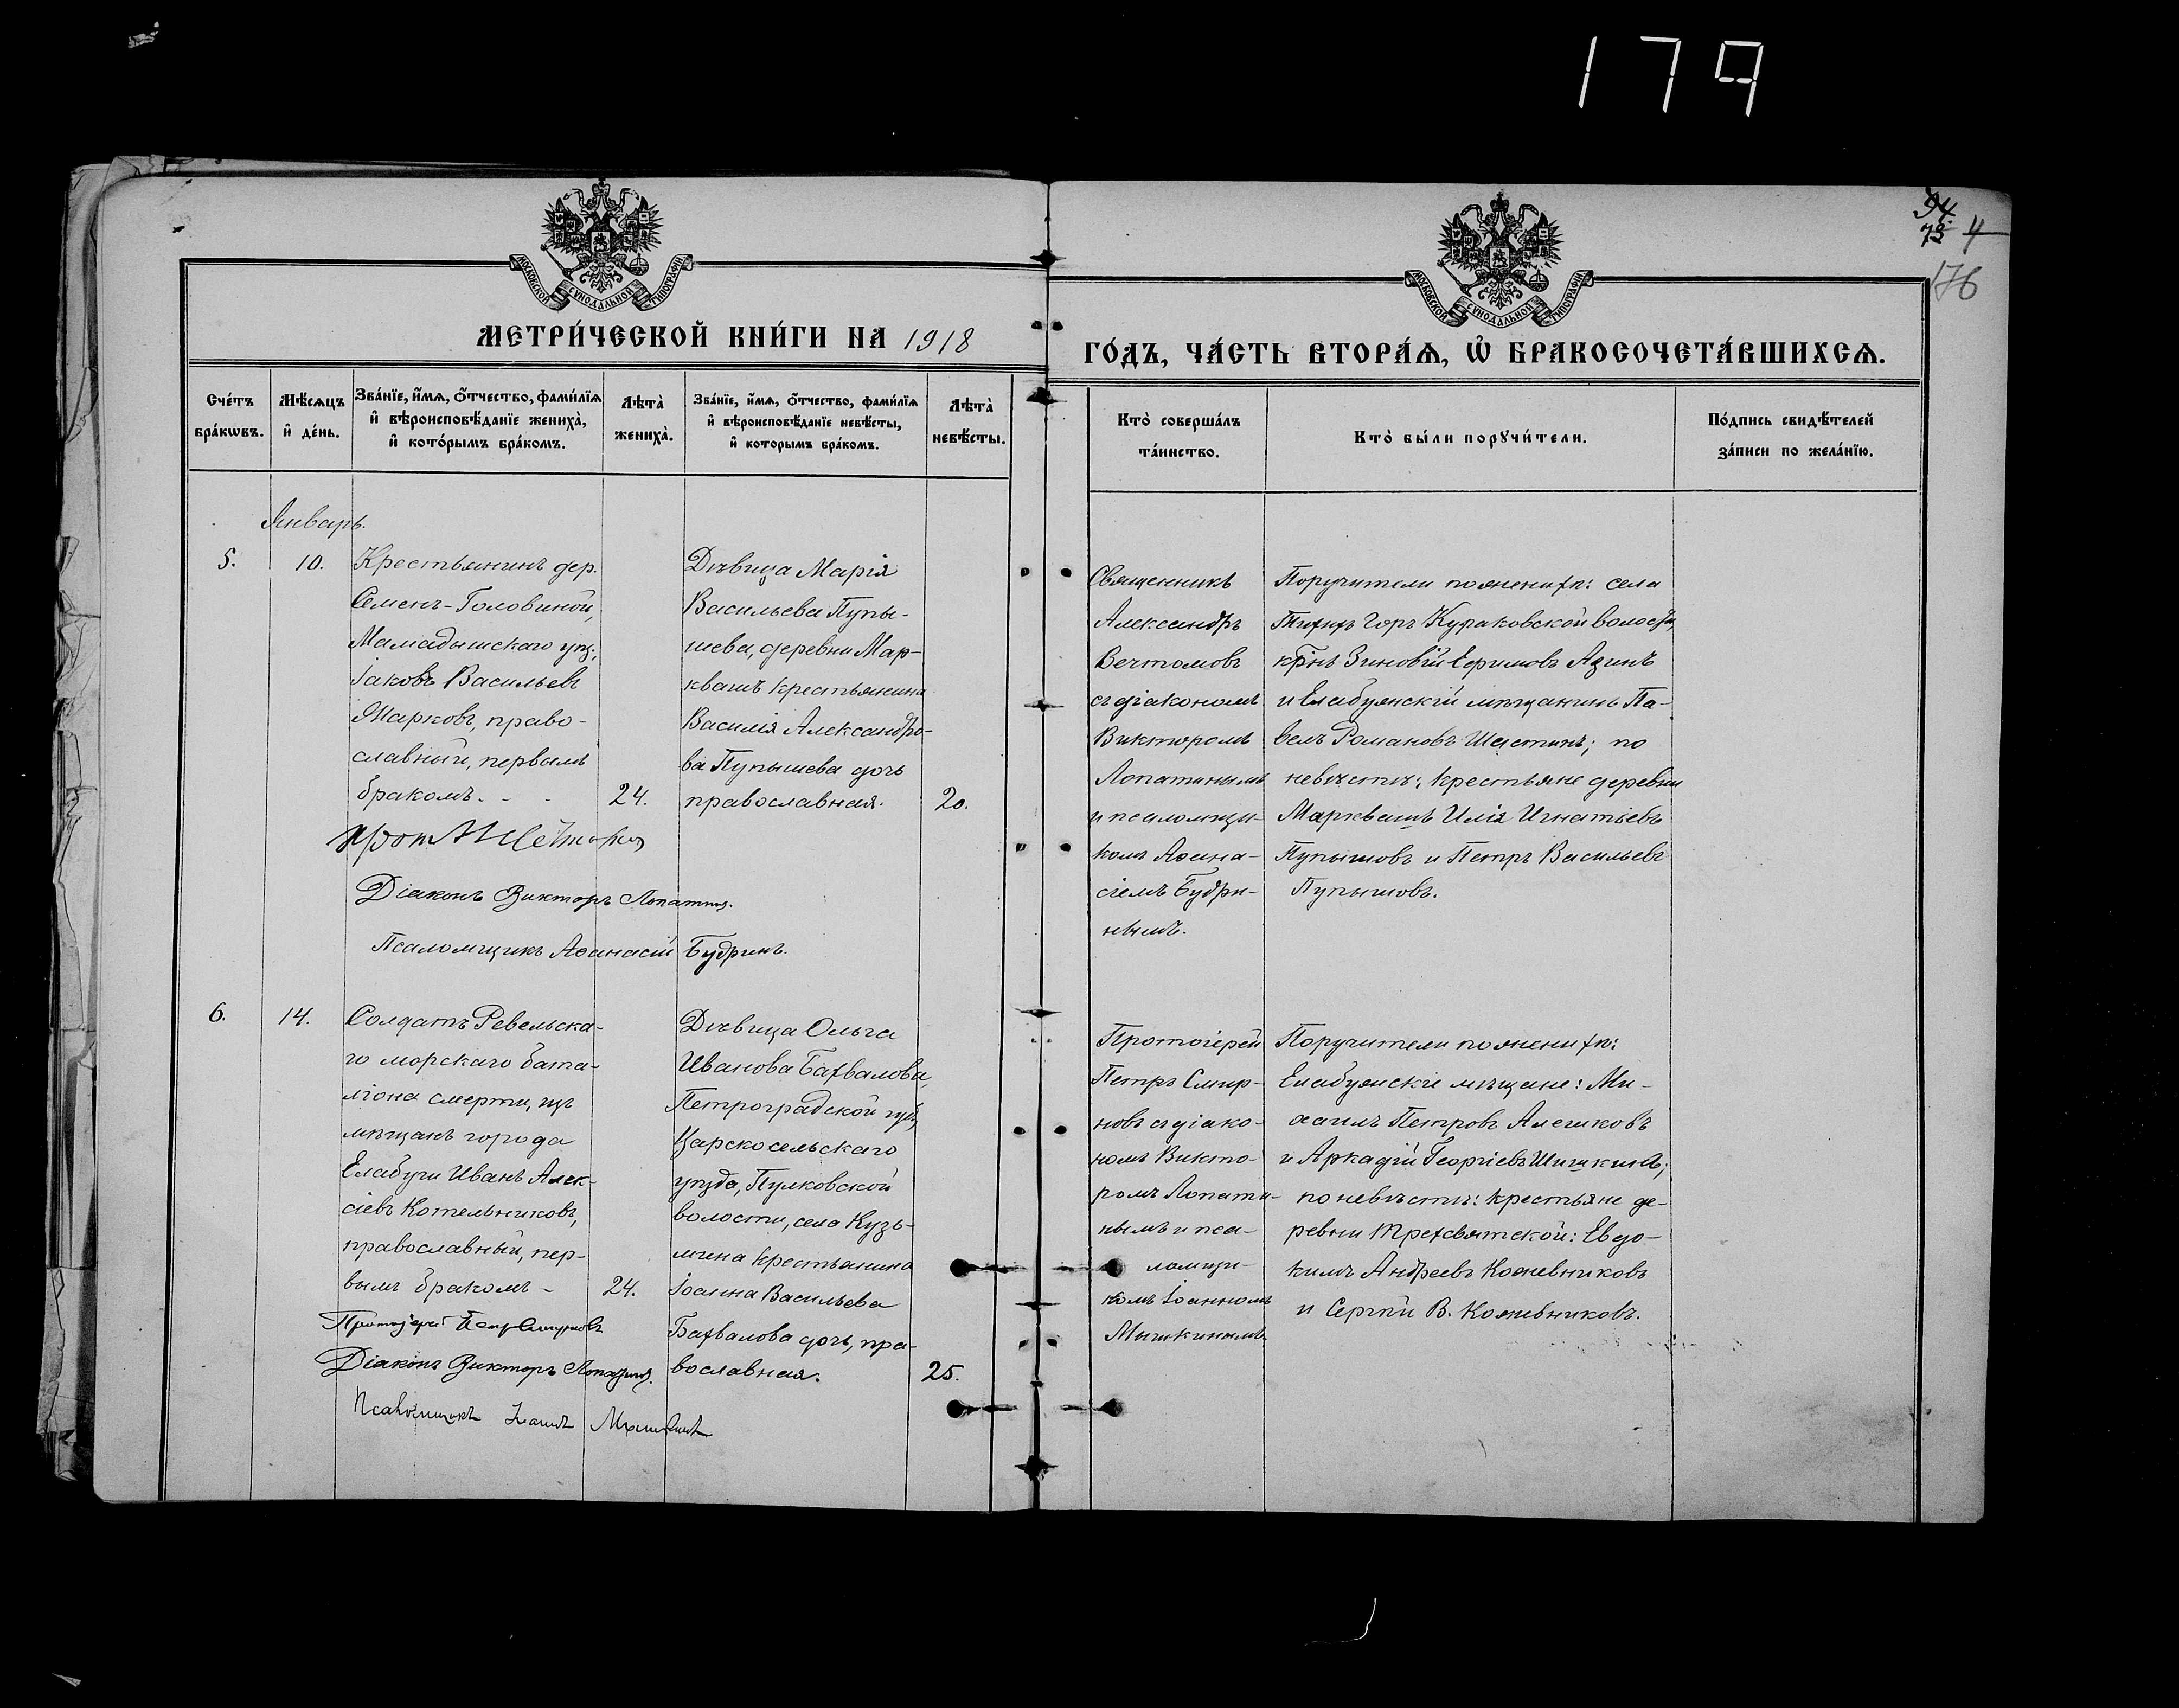 179
94.
73 4
176
МОСКОВСКОЙ СѴНОДАЛЬНОЙ ТИПОГРАФІИ
МОСКОВСКОЙ СѴНОДАЛЬНОЙ ТИПОГРАФІИ
МЕТРИ́ЧЕСКОЙ КНИ́ГИ НА 1918
ГО́ДЪ, ЧА́СТЬ ВТОРА́Ѧ, Ѡ҆ БРАКОСОЧЕТА́ВШИХСѦ.
Сче́тъ бра́кѡвъ.
Мѣ́сѧцъ и҆ де́нь.
Зва́нїе, и҆́мѧ, ѻ҆́тчество, фами́лїѧ и҆ вѣроисповѣ́данїе жениха̀, и҆ кото́рымъ бра́комъ.
Лѣта̀ жениха̀.
Зва́нїе, и҆́мѧ, ѻ҆́тчество, фами́лїѧ и҆ вѣроисповѣ́данїе невѣ́сты, и҆ которымъ бра́комъ.
Лѣта̀ невѣ́сты.
Кто̀ соверша́лъ та́инство.
Кто̀ бы́ли порꙋчи́тели.
По́дпись свидѣ́телей за́писи по жела́нїю.
Январь.
5.
10.
Крестьянинъ дер.
Семенъ-Головиной,
Мамадышскаго уѣз.,
Іаковъ Васильевъ
Марковъ, право-
славный, первымъ
бракомъ. - -
24.
Дѣвица Марія
Васильева Пупы-
шева, деревни Мар-
квашъ крестьянина
Василія Александро-
ва Пупышева дочь
православная.
20.
Священникъ
Александръ
Вечтомовъ
съ діакономъ
Викторомъ
Лопатинымъ
и псаломщи-
комъ Аѳана-
сіемъ Будри-
нымъ.
Поручители по женихѣ: села
Тихихъ Горъ Кураковской волости,
кр̃нъ Зиновій Ефимовъ Азинъ
и Елабужскій мѣщанинъ Па-
велъ Романовъ Шастинъ; по
невѣстѣ: крестьяне деревни
Марквашъ Илія Игнатьевъ
Пупышовъ и Петръ Васильевъ
Пупышовъ.
Діаконъ Викторъ Лопатинъ.
Псаломщикъ Аѳанасій Будринъ.
6.
14.
Солдатъ Ревельска-
го морскаго бата-
ліона смерти, изъ
мѣщанъ города
Елабуги Иванъ Алек-
сіевъ Котельниковъ,
православный, пер-
вымъ бракомъ -
24.
Дѣвица Ольга
Иванова Бахвалова,
Петроградской губ.,
Царскосельскаго
уѣзда, Пулковской
волости, села Кузь-
мина крестьянина
Іоанна Васильева
Бахвалова дочь, пра-
вославная.
25.
Протоіерей
Петръ Смир-
новъ съ діако-
номъ Викто-
ромъ Лопати-
нымъ и пса-
ломщи-
комъ Іоанномъ
Мышкинымъ
Поручители по женихѣ:
Елабужскіе мѣщане: Ми-
хаилъ Петровъ Алешковъ
и Аркадій Георгіевъ Шишкинъ;
по невѣстѣ: крестьяне де-
ревни Трехсвятской: Евдо-
кимъ Андреевъ Кожевниковъ
и Сергѣй В. Кожевниковъ.
Протоіерей Петръ Смирновъ
Діаконъ Викторъ Лопатинъ.
Псаломщикъ Іоаннъ Мышкинъ